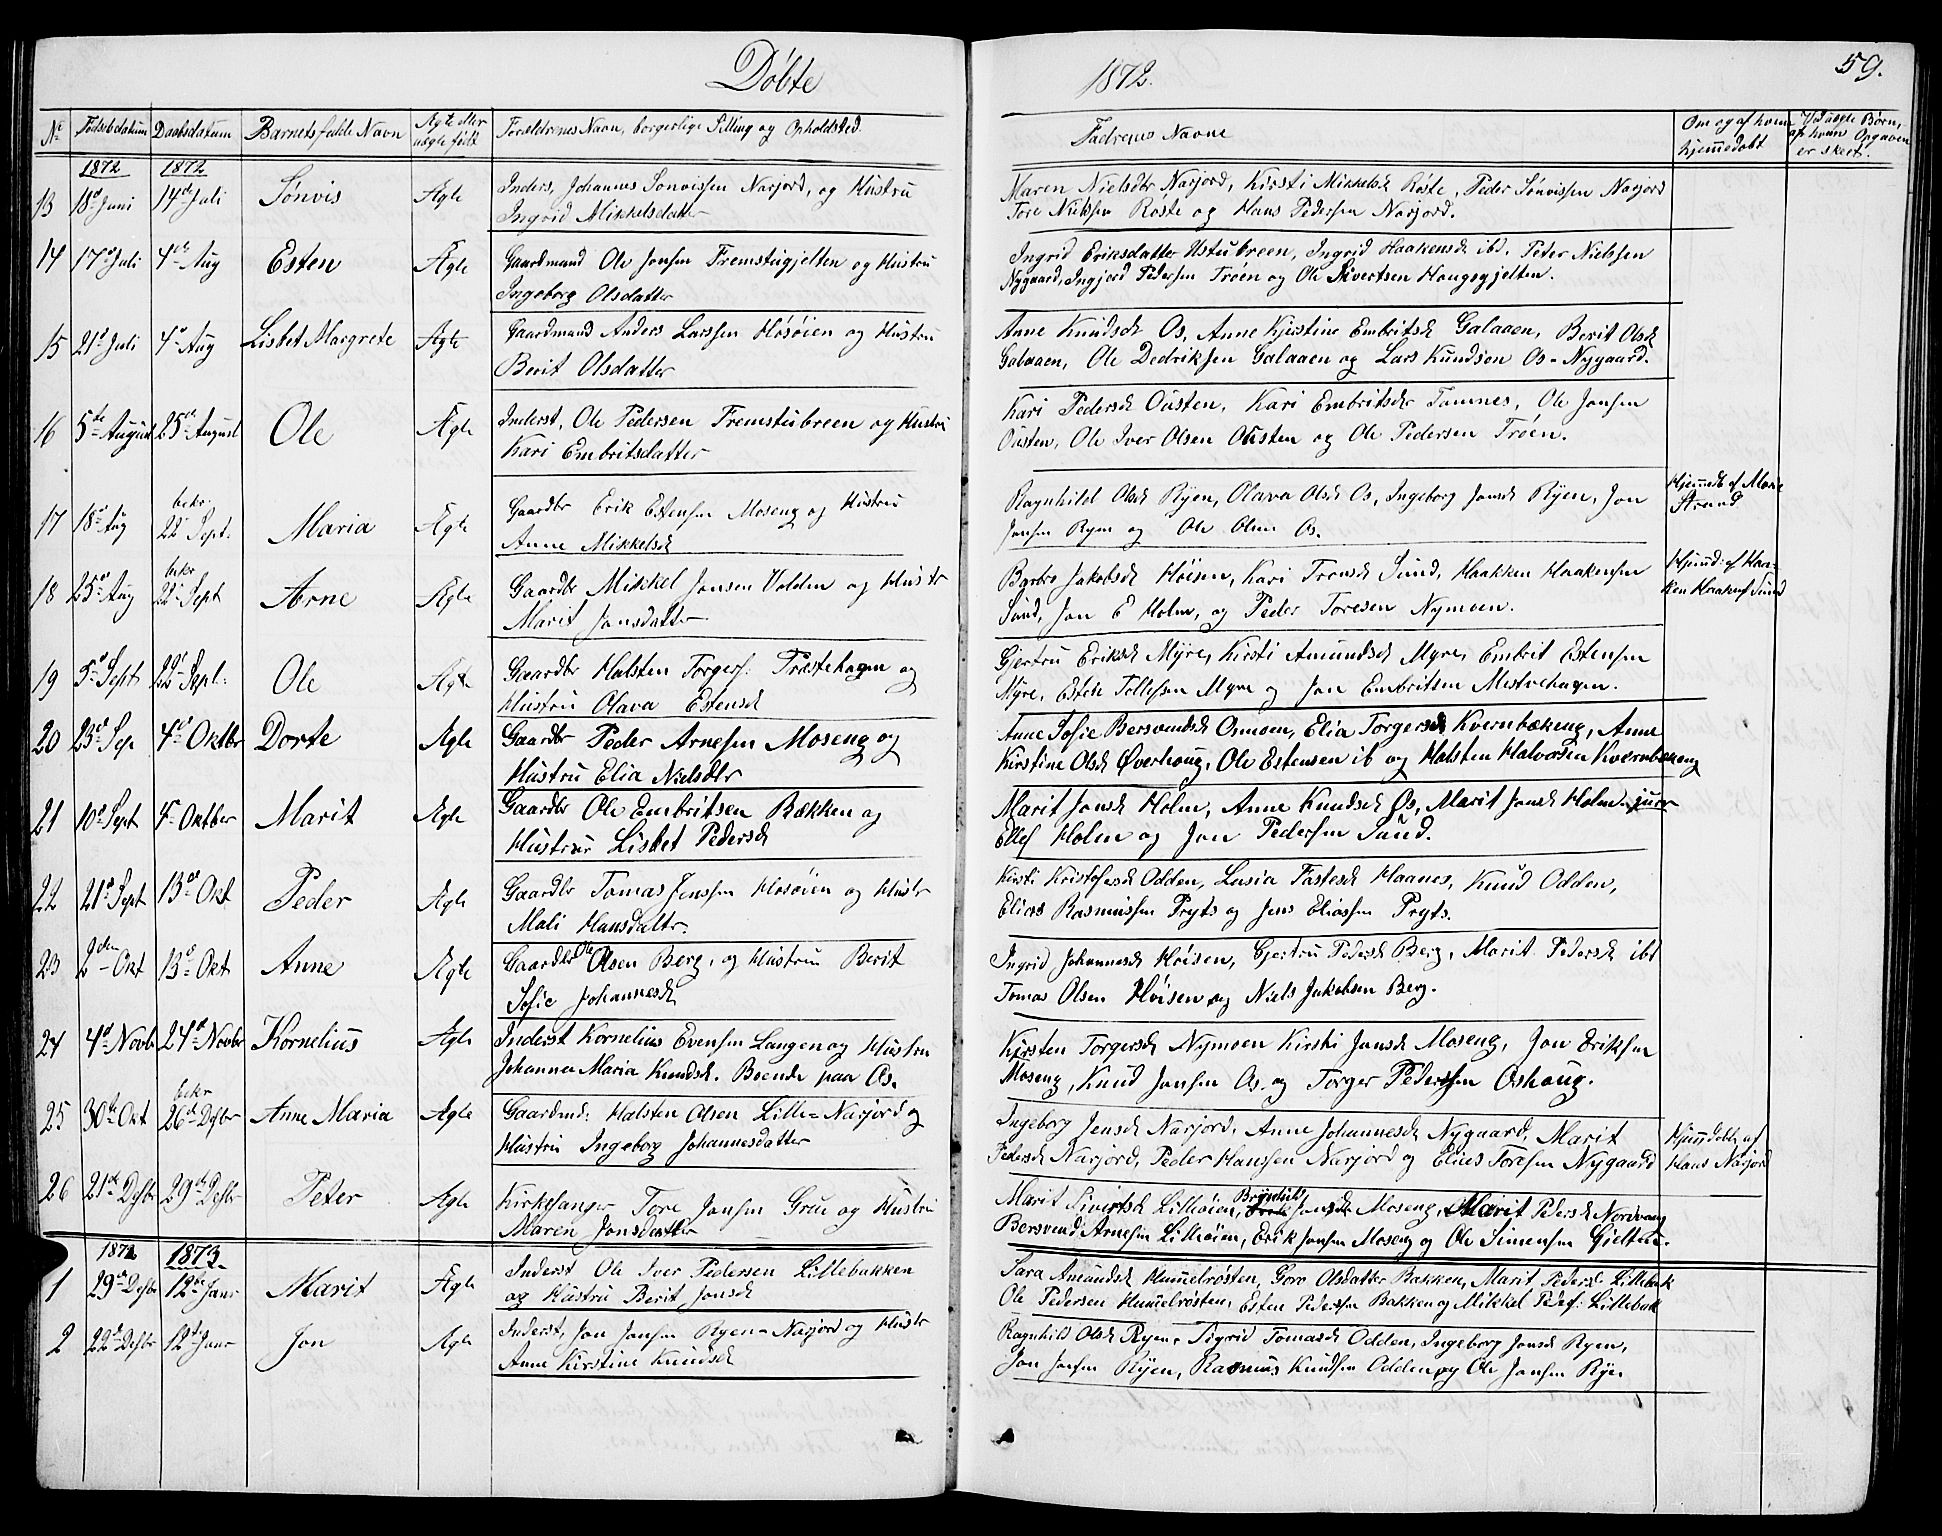 Döbte
1872.
59.
No Födselsdatum Daabsdatum Barnets fulde Navn Ægte eller uægte födt Forældrenes Navn, borgerlige Stilling og Opholdsted.
Fadrenes Navne
Om og af hvem hjemmedöbt
Ved uægte Børn, af hvem Opgaven er skeet.
1872 1872
13 18d Juni 14de Juli Sönvis Ægte Inders, Johannes Sönvissen Narjord, og Hustru
Ingrid Mikkelsdatter
Maren Nielsdtr Narjord, Kirsti Mikkelsd Röste, Peder Sönvissen Narjord
Tore Nielsen Röste og Hans Pedersen Narjord.
14 17d Juli 4de Aug Esten Ægte Gaardmand Ole Jonsen Fremstugjelten og Hustru
Ingeborg Olsdatter
Ingrid Eriksdatter Ustubreen, Ingrid Haakensd ibd. Peter Nielssen
Nygaard, Ingjerd Pedersen Tröen og Ole Sivertsen Haugsgjelten.
15 21d Juli 4d Aug Lisbet Margrete Ægte Gaardmand Anders Larssen Hösöien og Hustru
Berit Olsdatter
Anne Knudsd Os, Anne Kjerstine Embritsd Galaaen, Berit Olsd
Galaaen, Ole Dedriksen Galaaen og Lars Knudsen Os-Nygaard.
16 5te August 25de August Ole Ægte Inderst, Ole Pedersen Fremstubreen og Hustru
Kari Embritsdatter
Kari Pedersd Ousten, Kari Embritsdtr Tamnes, Ole Jonsen
Ousten, Ole Iver Olsen Ousten og Ole Pedersen Tröen.
17 18d Aug bekr. 22 Sept. Maria Ægte Gaardbr Erik Estensen Moseng og Hustru
Anne Mikkelsd
Ragnhild Olsd Ryen, Olava Olsd Os, Ingeborg Jonsd Ryen, Jon
Jonsen Ryen og Ole Olsen Os.
Hjemmdt af Mone
Strand
18 25d Aug bekr 22 Sept Arne Ægte Gaardbr Mikkel Jonsen Volden og Hustr
Marit Jonsdatter
Barbro Jakobsd Höisen, Kari Tronsd Sund, Haakken Haakensen
Sund, Jon E Holm, og Peder Toresen Nymoen.
Hjemmd: af Haa-
ken Haakens Sund
19 5d Sept 22d Sept: Ole Ægte Gaardbr Halsten Torgers: Præstehagen og
Hustru Olava Estensd
Gjertru Eriksd Myre, Kirsti Amundsd Myre, Embrit Estensen
Myre, Esten Tollefsen Myre og Jon Embritsen Mestvehagen.
20 23d Sep 4de Oktbr Dorte Ægte Gaardbr Peder Arnesen Moseng og
Hustru Elia Nielsdtr
Anne Sofie Bersvendsd Onnoen, Elia Torgersd Kvernbækeng, Anne
Kirstine Olsd Øverhoug, Ole Estensen ib og Halsten Halvorsen Kvernbækeng
21 10d Sept 4 Oktber Marit Ægte Gaardbr Ole Embritsen Bækken og
Hustru Lisbet Pedersd
Marit Jonsd Holm, Anne Knudsd Os, Marit Jonsd Holm junr
Ellef Holm og Jon Pedersen Sund.
22 21d Sept 13de Okt Peder Ægte Gaardbr Tomas Jenssen Hosöien og Hustr
Mali Hansdatter
Kirsti Kristofersd Odden, Lusia Fastesd Haanes, Knud Odden,
Elias Rasmussen Pryts og Jens Eliassen Pryts.
23 2den Okt 13d Okt Anne Ægte Gaardbr Ole Olsen Berg, og Hustru Berit
Sofie Johannesd
Ingrid Johannesd Höisen, Gjertru Pedersd Berg, Marit Pedersd ibd
Tomas Olsen Höisen og Niels Jakobsen Berg.
24 4d Novbr 24d Novbr Kornelius Ægte Inderst Kornelius Evensen Langen og Hustru
Johanna Maria Knudsd. Boende paa Os.
Kirsten Torgersd Nymoen Kirsti Jonsd Moseng, Jon Eriksen
Moseng, Knud Jonsen Os og Torger Pederssen Oshoug.
25 30te Okt bekr 26de Desbr Anne Maria Ægte Gaardmd: Halsten Olsen Lille-Narjord og
Hustru Ingeborg Johannesdatter
Ingeborg Jensd Narjord, Anne Johannesd Nygaard, Marit
Pedersd Narjord, Peder Hanssen Narjord og Elias Toresen Nygaard
Hjemmdöbt af
Hans Narjord
26 21de Desbr 29de Desbr Peter Ægte Kirkesanger Tore Jonsen Grue og Hustru
Maren Jonsdatter
Marit Sivertsd Lillöien, Brynhild Jonsdtr Moseng, Marit Pedersd Nordvang
Bersvend Arnesen Lillöien, Erik Jonsen Moseng og Ole Simensen Gjelten.
1872 1873
1 29d Desbr 12te Janr Marit Ægte Inderst Ole Iver Pedersen Lillebakken
og Hustru Berit Jonsd
Sara Amundsd Hummelrösten, Goro Olsdatter Bakken, Marit Pedersd Lillebak
Ole Pedersen Hummelrösten, Esten Pedersen Bakken og Mikkel Peders: Lillebak
2 22d Desbr 12d Janr Jon Ægte Inderst, Jon Jonsen Ryen-Narjord og Hustr
Anne Kirstine Knudsd
Ragnhild Olsd Ryen, Sigrid Tomasd Odden, Ingeborg Jonsd Ryen,
Jon Jonsen Ryen, Rasmus Knudsen Odden og Ole Jonsen Rye.